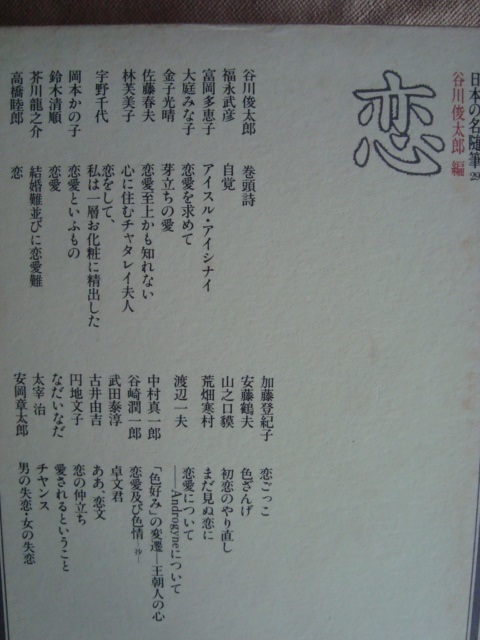 日本の名随筆 29
谷川俊太郎 編
恋
谷川俊太郎 巻頭詩
福永武彦 自覚
富岡多恵子 アイスル・アイシナイ
大庭みな子 恋愛を求めて
金子光晴 芽立ちの愛
佐藤春夫 恋愛至上かも知れない
林芙美子 心に住むチャタレイ夫人
宇野千代 恋をして、
私は一層お化粧に精出した
岡本かの子 恋愛といふもの
鈴木清順 恋愛
芥川龍之介 結婚難並びに恋愛難
高橋睦郎 恋
加藤登紀子 恋ごっこ
安藤鶴夫 色ざんげ
山之口貘 初恋のやり直し
荒畑寒村 まだ見ぬ恋に
渡辺一夫 恋愛について
――Androgyneについて
中村真一郎 「色好み」の変遷―王朝人の心
谷崎潤一郎 恋愛及び色情―抄―
武田泰淳 卓文君
古井由吉 ああ、恋文
円地文子 恋の仲立ち
なだいなだ 愛されるということ
太宰 治 チヤンス
安岡章太郎 男の失恋・女の失恋